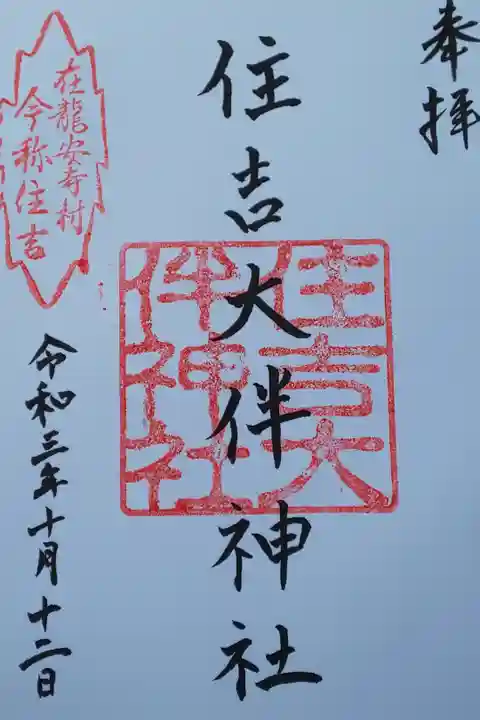 奉拝
住吉大伴神社
住吉大
伴神社
在龍安寺村
今称住吉
令和三年十月十二日